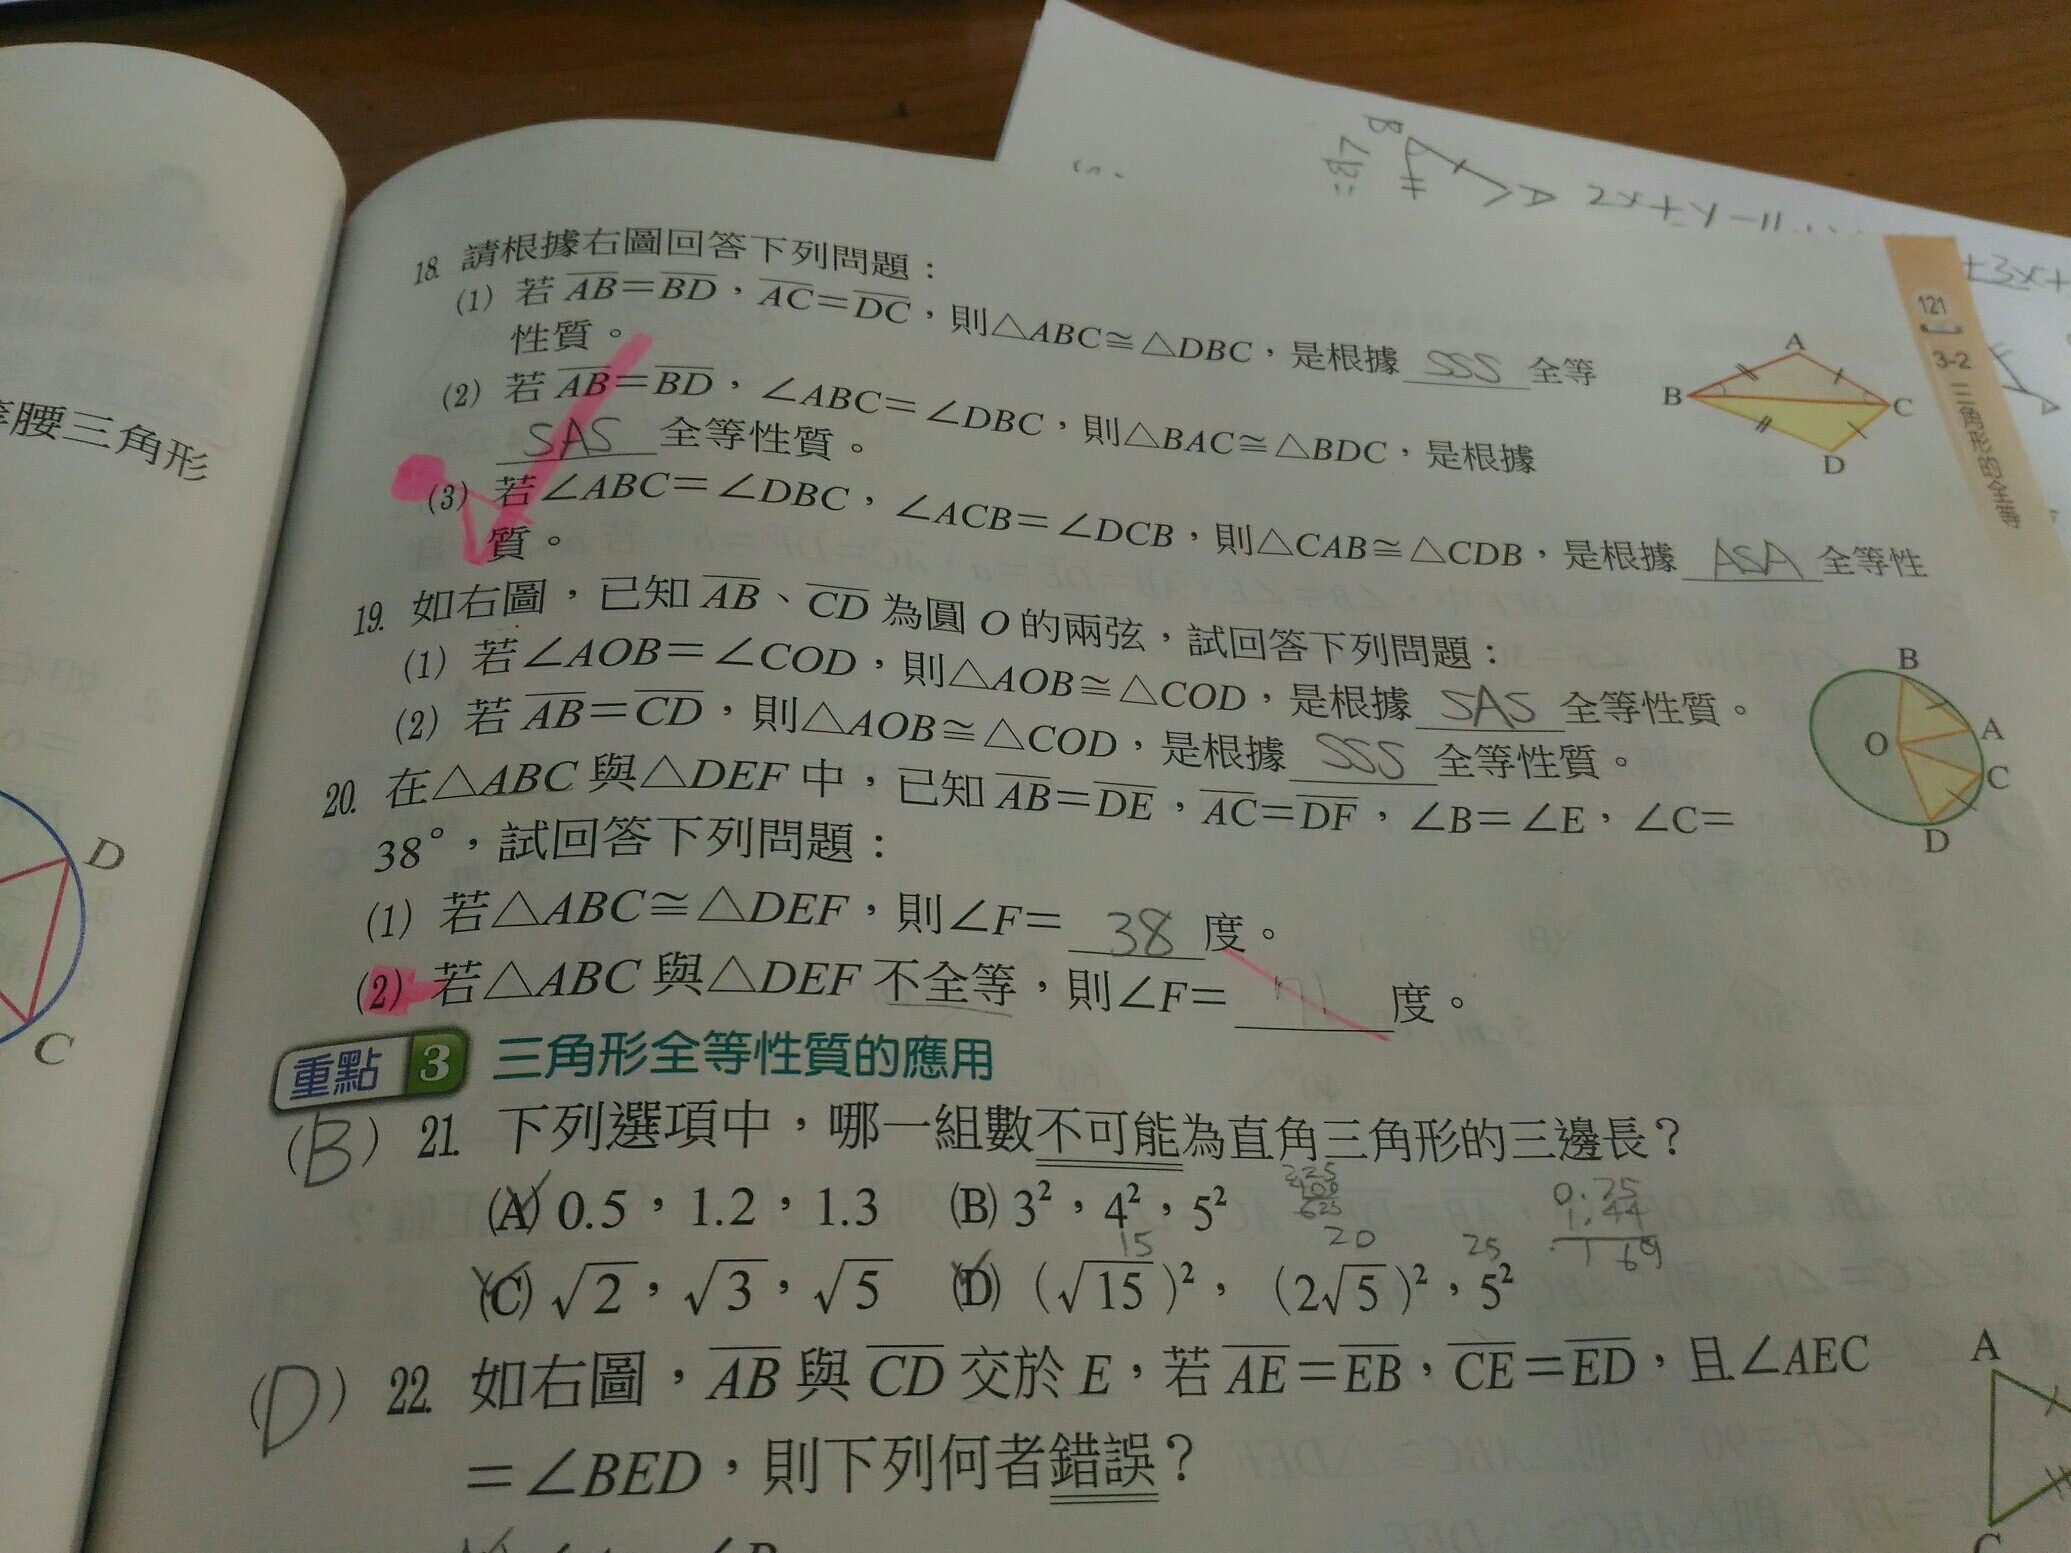 等腰三角形
D
C
18. 請根據右圖回答下列問題：
(1) 若 AB=BD，AC=DC，則△ABC≅△DBC，是根據 SSS 全等
性質。
(2) 若 AB=BD，∠ABC=∠DBC，則△BAC≅△BDC，是根據
SAS 全等性質。
(3) 若∠ABC=∠DBC，∠ACB=∠DCB，則△CAB≅△CDB，是根據 ASA 全等性
質。
A
B
C
D
121
3-2
三角形的全等
19. 如右圖，已知 AB、CD 為圓 O 的兩弦，試回答下列問題：
(1) 若∠AOB=∠COD，則△AOB≅△COD，是根據 SAS 全等性質。
(2) 若 AB=CD，則△AOB≅△COD，是根據 SSS 全等性質。
B
A
O
C
D
20. 在△ABC 與△DEF 中，已知 AB=DE，AC=DF，∠B=∠E，∠C=
38°，試回答下列問題：
(1) 若△ABC≅△DEF，則∠F= 38 度。
(2) 若△ABC 與△DEF 不全等，則∠F= 度。
重點 3 三角形全等性質的應用
(B) 21. 下列選項中，哪一組數不可能為直角三角形的三邊長？
(A) 0.5，1.2，1.3 (B) 3²，4²，5²
15 20 25
(C) √2，√3，√5 (D) (√15)²，(2√5)²，5²
(D) 22. 如右圖，AB 與 CD 交於 E，若 AE=EB，CE=ED，且∠AEC
=∠BED，則下列何者錯誤？
A
C